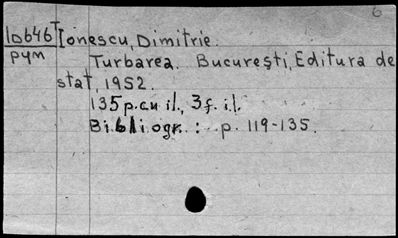 6
ID646 Ionescu, Dimitrie.
PYM
Turbarea. Bucureşti, Editura de
stat, 1952.
135 p. cu il., 3 f. il.
Bibliogr.: p. 119-135.